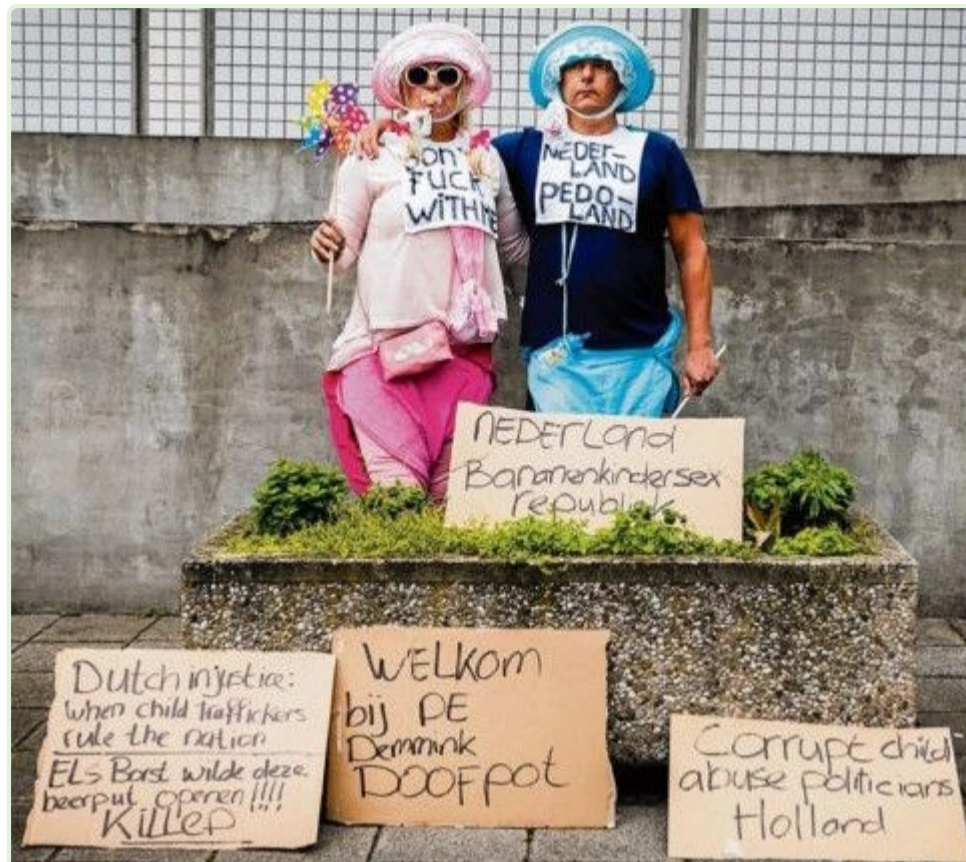 DON'T
FUCK
WITH ME
NEDER-
LAND
PEDO-
LAND
NEDERLAND
Bananenkindersex
republiek
Dutch injustice:
when child traffickers
rule the nation
ELS Borst wilde deze
beerput openen!!!!
KILLED
WELKOM
bij DE
Demmink
DOOFpot
Corrupt child
abuse politicians
Holland